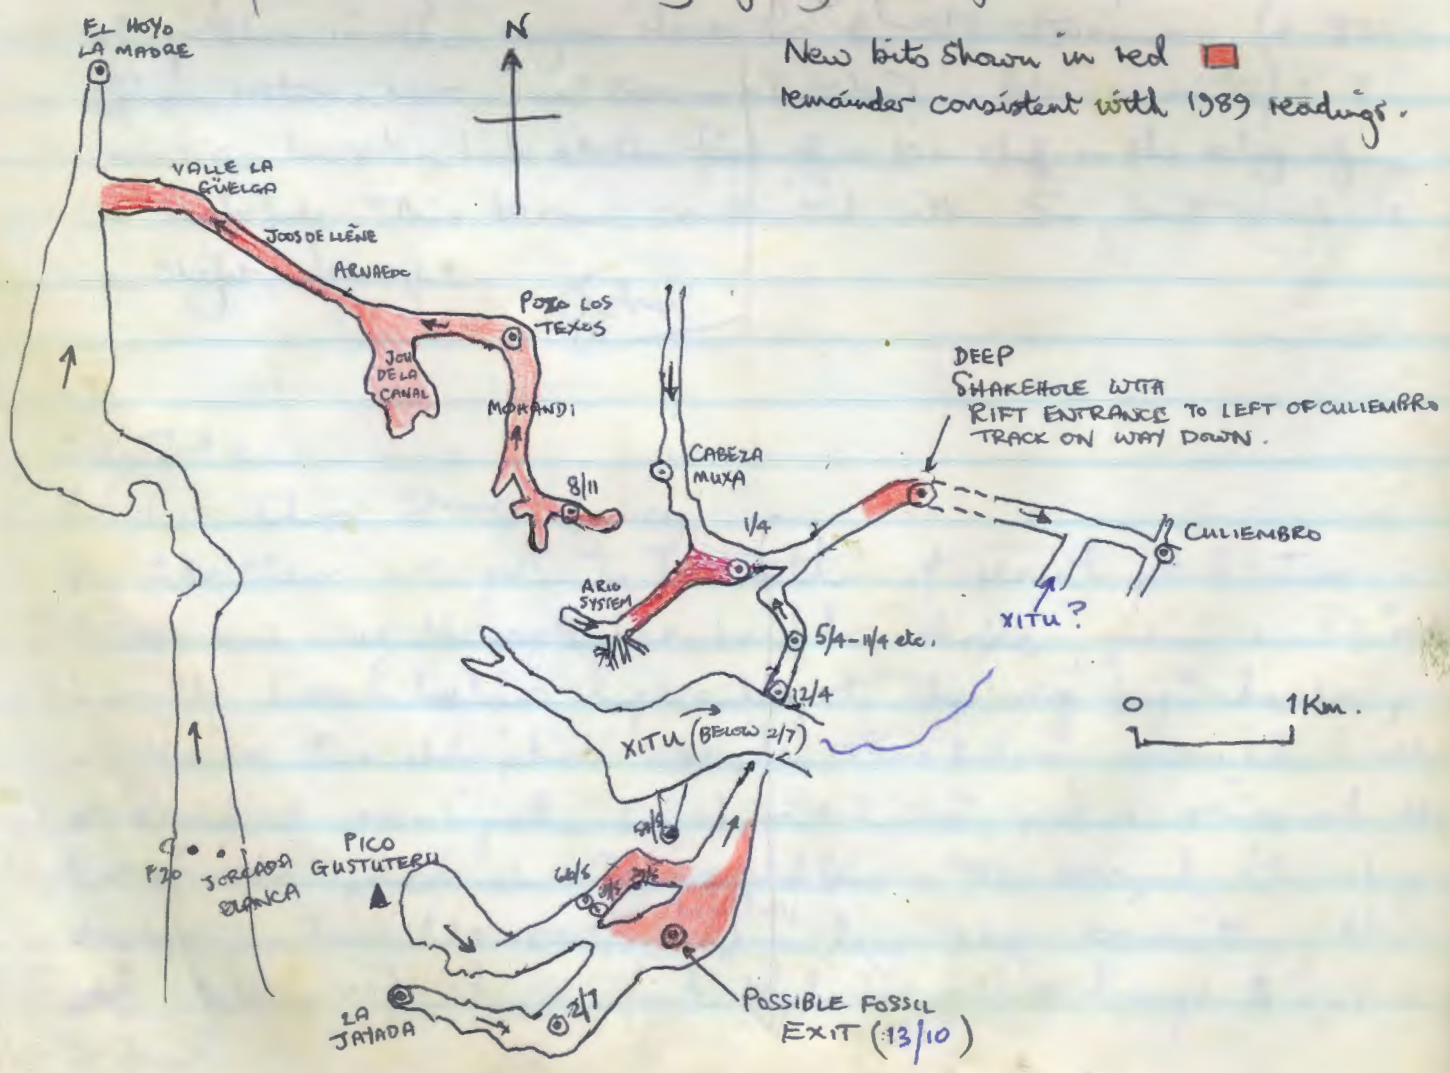 EL HOYO
LA MADRE
N
New bits shown in red
remainder consistent with 1989 readings.
VALLE LA
GÜELGA
JOOS DE LLEÑE
ARNAEDO
POZO LOS
TEXOS
JOU
DE LA
CANAL
MOHANDI
8/11
CABEZA
MUXA
1/4
DEEP
SHAKEHOLE WITH
RIFT ENTRANCE TO LEFT OF CULIEMBRO
TRACK ON WAY DOWN.
CULIEMBRO
XITU?
ARIO
SYSTEM
5/4-11/4 etc.
12/4
XITU (BELOW 2/7)
0 1Km.
F20
JORCADA
BLANCA
PICO
GUSTUTERU
2/7
LA
JAYADA
POSSIBLE FOSSIL
EXIT (13/10)